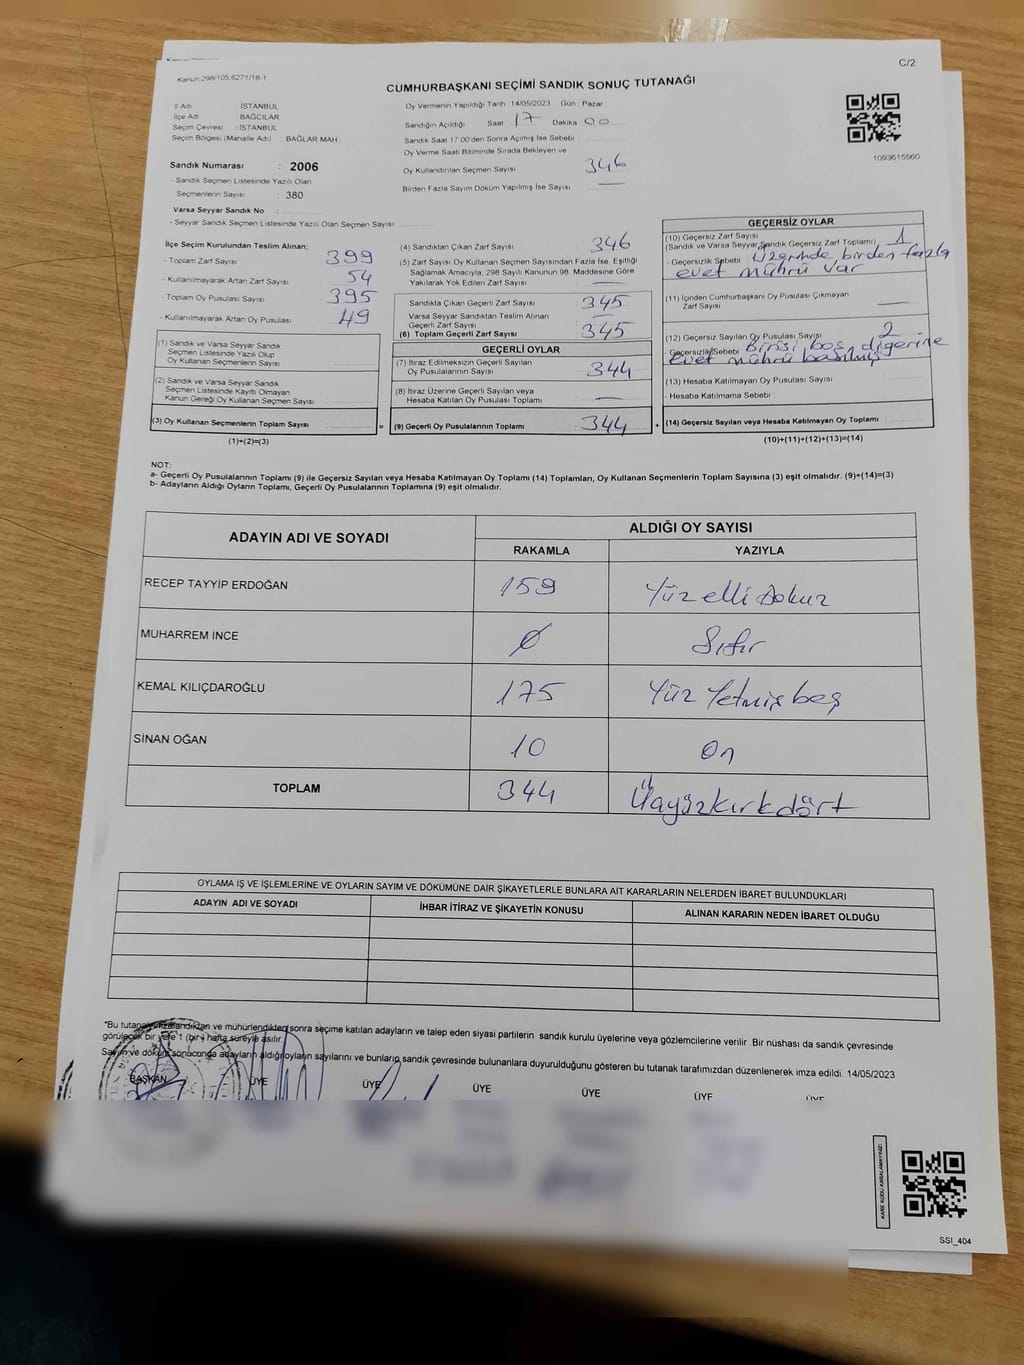 Kanun:298/105,6271/18-1
C/2
CUMHURBAŞKANI SEÇİMİ SANDIK SONUÇ TUTANAĞI
İl Adı : İSTANBUL
İlçe Adı : BAĞCILAR
Seçim Çevresi : İSTANBUL
Seçim Bölgesi (Mahalle Adı) : BAĞLAR MAH.
Sandık Numarası : 2006
- Sandık Seçmen Listesinde Yazılı Olan
Seçmenlerin Sayısı : 380
Varsa Seyyar Sandık No :
- Seyyar Sandık Seçmen Listesinde Yazılı Olan Seçmen Sayısı:
Oy Vermenin Yapıldığı Tarih: 14/05/2023 Gün: Pazar
Sandığın Açıldığı Saat 17 Dakika 00
Sandık Saat 17:00'den Sonra Açımış İse Sebebi :
Oy Verme Saati Bitiminde Sırada Bekleyen ve
Oy Kullandırılan Seçmen Sayısı : 346
Birden Fazla Sayım Döküm Yapılmış İse Sayısı : —
1093615560
İlçe Seçim Kurulundan Teslim Alınan;
- Toplam Zarf Sayısı : 399
- Kullanılmayarak Artan Zarf Sayısı : 54
- Toplam Oy Pusulası Sayısı : 395
- Kullanılmayarak Artan Oy Pusulası : 49
(1) Sandık ve Varsa Seyyar Sandık
Seçmen Listesinde Yazılı Olup
Oy Kullanan Seçmenlerin Sayısı :
(2) Sandık ve Varsa Seyyar Sandık
Seçmen Listesinde Kayıtlı Olmayan
Kanun Gereği Oy Kullanan Seçmen Sayısı :
(3) Oy Kullanan Seçmenlerin Toplam Sayısı : =
(1)+(2)=(3)
(4) Sandıktan Çıkan Zarf Sayısı : 346
(5) Zarf Sayısı Oy Kullanan Seçmen Sayısından Fazla İse, Eşitliği
Sağlamak Amacıyla, 298 Sayılı Kanunun 98. Maddesine Göre
Yakılarak Yok Edilen Zarf Sayısı : —
Sandıkta Çıkan Geçerli Zarf Sayısı : 345
Varsa Seyyar Sandıktan Teslim Alınan
Geçerli Zarf Sayısı : —
(6) Toplam Geçerli Zarf Sayısı : 345
GEÇERLİ OYLAR
(7) İtiraz Edilmeksizin Geçerli Sayılan
Oy Pusulalarının Sayısı : 344
(8) İtiraz Üzerine Geçerli Sayılan veya
Hesaba Katılan Oy Pusulası Toplamı : —
(9) Geçerli Oy Pusulalarının Toplamı : 344 +
GEÇERSİZ OYLAR
(10) Geçersiz Zarf Sayısı
(Sandık ve Varsa Seyyar Sandık Geçersiz Zarf Toplamı) : 1
- Geçersizlik Sebebi : Üzerinde birden fazla
evet mührü var
(11) İçinden Cumhurbaşkanı Oy Pusulası Çıkmayan
Zarf Sayısı : —
(12) Geçersiz Sayılan Oy Pusulası Sayısı : 2
- Geçersizlik Sebebi : Birisi boş, diğerine
evet mührü basılmış
(13) Hesaba Katılmayan Oy Pusulası Sayısı :
- Hesaba Katılmama Sebebi :
(14) Geçersiz Sayılan veya Hesaba Katılmayan Oy Toplamı :
(10)+(11)+(12)+(13)=(14)
NOT:
a- Geçerli Oy Pusulalarının Toplamı (9) ile Geçersiz Sayılan veya Hesaba Katılmayan Oy Toplamı (14) Toplamları, Oy Kullanan Seçmenlerin Toplam Sayısına (3) eşit olmalıdır. (9)+(14)=(3)
b- Adayların Aldığı Oyların Toplamı, Geçerli Oy Pusulalarının Toplamına (9) eşit olmalıdır.
ADAYIN ADI VE SOYADI
ALDIĞI OY SAYISI
RAKAMLA YAZIYLA
RECEP TAYYİP ERDOĞAN 159 Yüz elli dokuz
MUHARREM İNCE 0 Sıfır
KEMAL KILIÇDAROĞLU 175 Yüz Yetmiş beş
SİNAN OĞAN 10 On
TOPLAM 344 Üçyüzkırkdört
OYLAMA İŞ VE İŞLEMLERİNE VE OYLARIN SAYIM VE DÖKÜMÜNE DAİR ŞİKAYETLERLE BUNLARA AİT KARARLARIN NELERDEN İBARET BULUNDUKLARI
ADAYIN ADI VE SOYADI İHBAR İTİRAZ VE ŞİKAYETİN KONUSU ALINAN KARARIN NEDEN İBARET OLDUĞU
*Bu tutanak imzalandıktan ve mühürlendikten sonra seçime katılan adayların ve talep eden siyasi partilerin sandık kurulu üyelerine veya gözlemcilerine verilir. Bir nüshası da sandık çevresinde
görülecek bir yere 1 (bir) hafta süreyle asılır.
Sayım ve döküm sonucunda adayların aldığı oyların sayılarını ve bunların sandık çevresinde bulunanlara duyurulduğunu gösteren bu tutanak tarafımızdan düzenlenerek imza edildi. 14/05/2023
BAŞKAN ÜYE ÜYE ÜYE ÜYE ÜYE ÜYE
KARE KODU KARALAMAYINIZ!
SSI_404